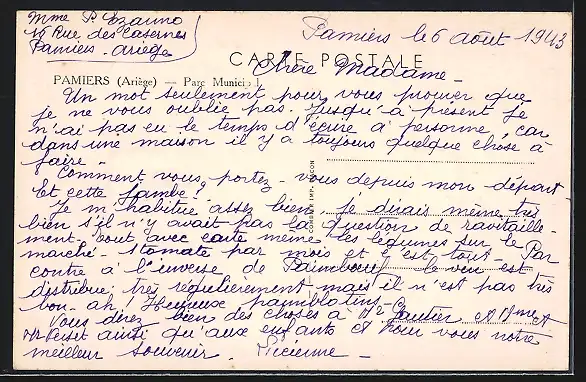 Mme P. Lozanno
15 Rue des Casernes
Pamiers - Ariège
Pamiers le 6 août 1943
CARTE POSTALE
PAMIERS (Ariège) — Parc Munici
Chère Madame -
Un mot seulement pour vous prouver que
je ne vous oublie pas. Jusqu'à présent je
n'ai pas eu le temps d'écrire à personne, car
dans une maison il y a toujours quelque chose à
faire -
Comment vous portez-vous depuis mon départ
Et cette jambe ?
Je m'habitue assez bien, je dirais même très
bien s'il n'y avait pas la question de ravitaille-
ment - tout avec carte même les légumes sur le
marché - 1 tomate par mois et c'est tout - Par
contre à l'inverse de Paimboeuf le vin est
distribué très régulièrement mais il n'est pas très
bon - ah ! Heureux paimblotins -
Vous direz bien des choses à Me Gautier, à Mme et
Mr ainsi qu'aux enfants et pour vous notre
meilleur souvenir.